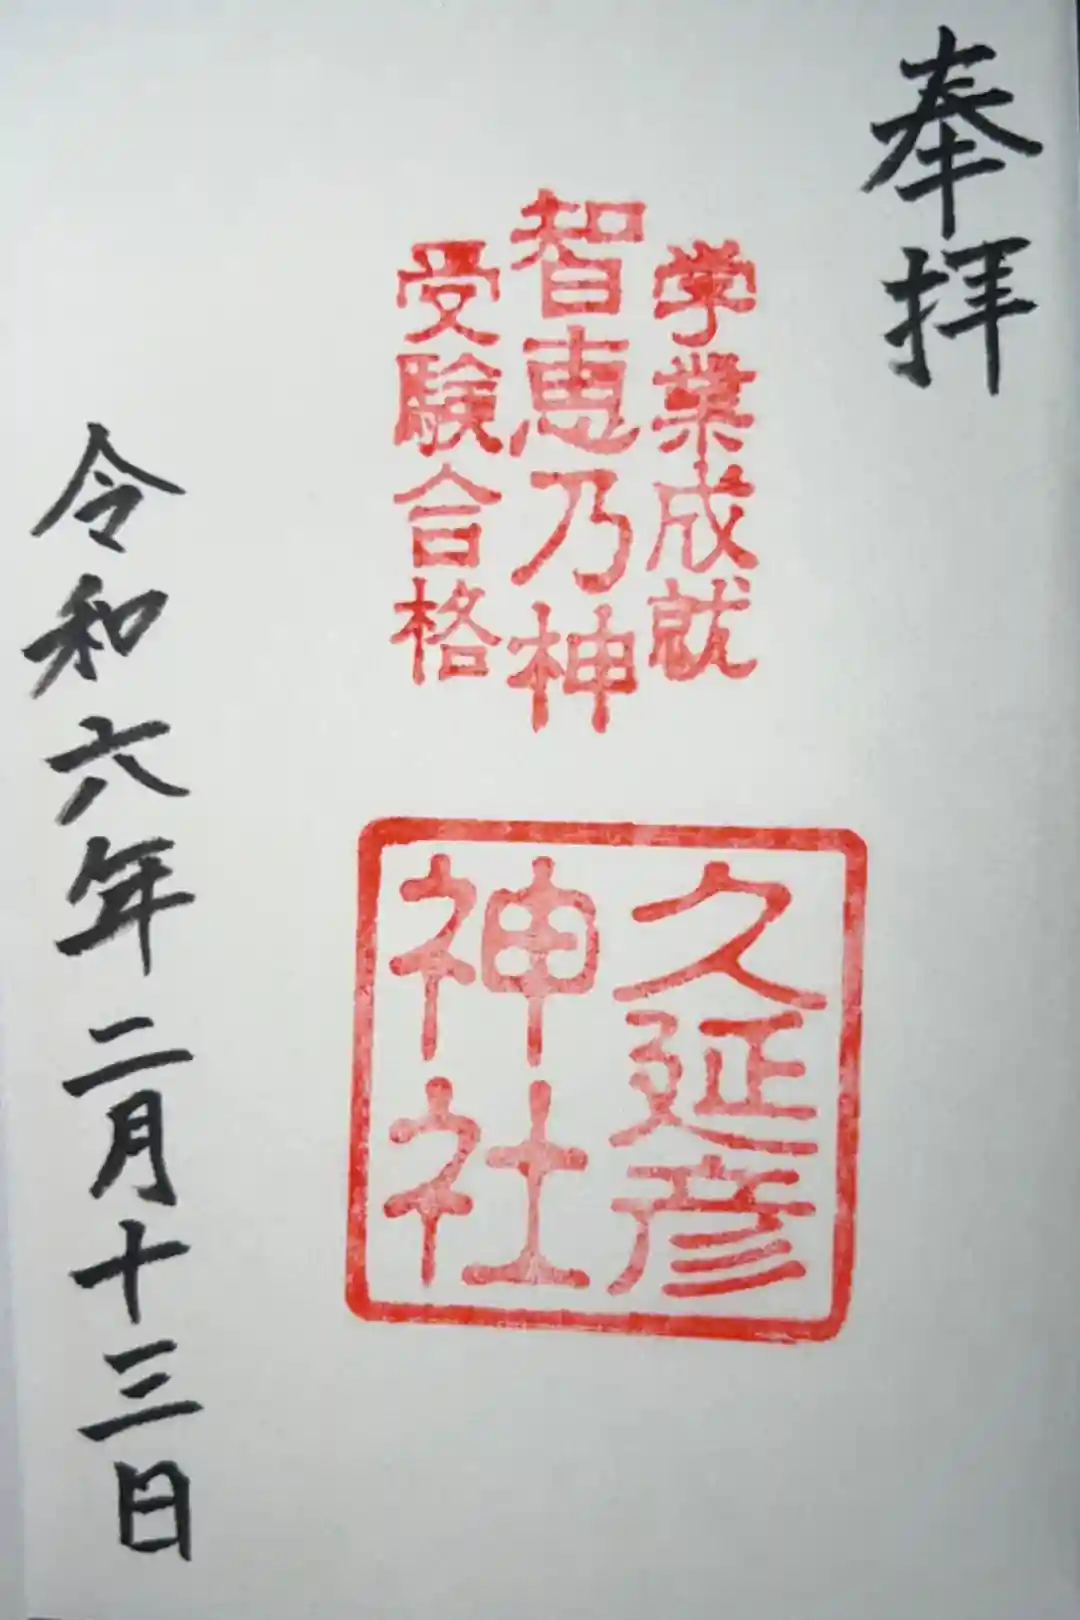 奉拝
学業成就
智恵乃神
受験合格
久延彦
神社
令和六年二月十三日